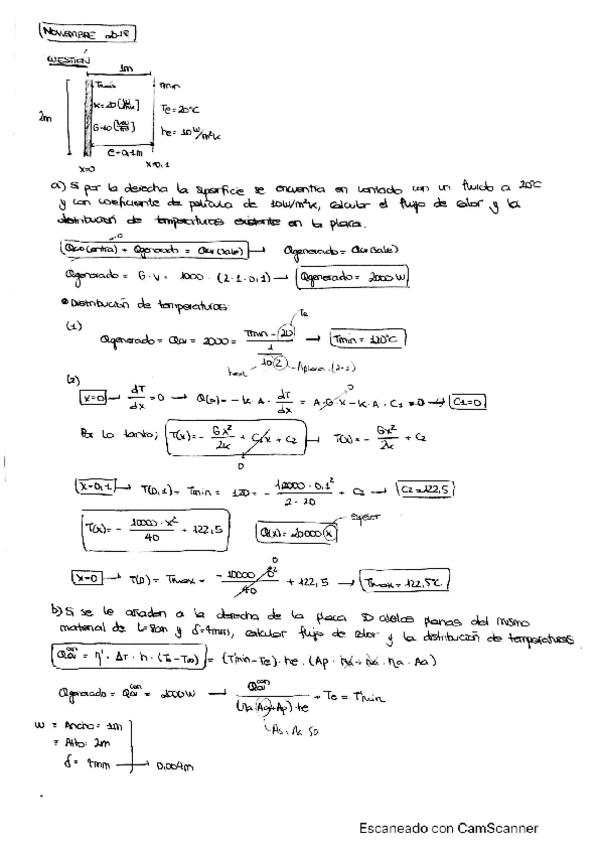 NOVIEMBRE 2018
CUESTIÓN
1m
Tmáx Tmin
2m K=20 [W/mK] Te=20ºC
he=10 W/m²K
e=0,1m
x=0 x=0,1
a) Si por la derecha la superficie se encuentra en contacto con un fluido a 20ºC
y con coeficiente de película de 10W/m²K, calcular el flujo de calor y la
distribución de temperaturas existente en la placa.
0
Qcal(entra) + Qgenerado = Qcal(sale) → Qgenerado = Qcal(sale)
Qgenerado = G·V = 1000 · (2·1·0,1) → Qgenerado = 2000W
Distribución de temperaturas:
Te
(1)
Qgenerado = Qcal = 2000 = Tmin - 20 / 1 / 10·2 → Tmin = 120ºC
Aplaca (2·1)
(2)
x=0 → dT/dx = 0 → Q(0) = -K·A· dT/dx = A·G·x - K·A·C1 = 0 → C1=0
Por lo tanto; T(x) = - Gx²/2K + C1x + C2 → T(x) = - Gx²/2K + C2
0
x=0,1 → T(0,1) = Tmin = 120 = - 10000 · 0,1² / 2·20 + C2 → C2=122,5
espesor
T(x) = - 10000·x² / 40 + 122,5 Q(x) = 20000 x
0
x=0 → T(0) = Tmax = -10000·0² / 40 + 122,5 → Tmax = 122,5ºC
b) Si se le añaden a la derecha de la placa 50 aletas planas del mismo
material de L=80cm y δ=4mm, calcular flujo de calor y la distribución de temperaturas
Qgenerado = Qcal = 2000W → + Te = T'min
w = Ancho = 1m
= Alto: 2m
δ = 4mm → 0.004m
Escaneado con CamScanner